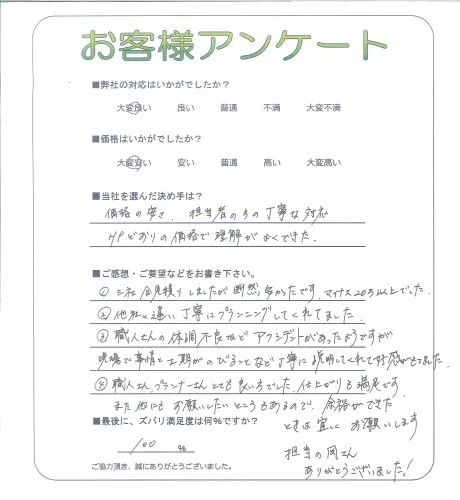 お客様アンケート
■弊社の対応はいかがでしたか？
大変良い 良い 普通 不満 大変不満
■価格はいかがでしたか？
大変安い 安い 普通 高い 大変高い
■当社を選んだ決め手は？
価格の安さ、担当者の方の丁寧な対応
HPどおりの価格で理解がよくできた。
■ご感想・ご要望などをお書き下さい。
① 三社 見積りしましたが断然、安かったです。マイナス20万以上でした。
② 他社と違い丁寧にプランニングしてくれてました。
③ 職人さんの体調不良など アクシデントがあったようですが
現場で事情と工期がのびることなど丁寧に説明してくれて好感がもてました。
④ 職人さん、プランナーさん とても良い方でした。仕上がりも満足です
また他にも お願いしたいところもあるので、余裕ができた
■最後に、ズバリ満足度は何%ですか？
ときは宜しく お願いします
100 %
担当の岡さん
ありがとうございました！
ご協力頂き、誠にありがとうございました。